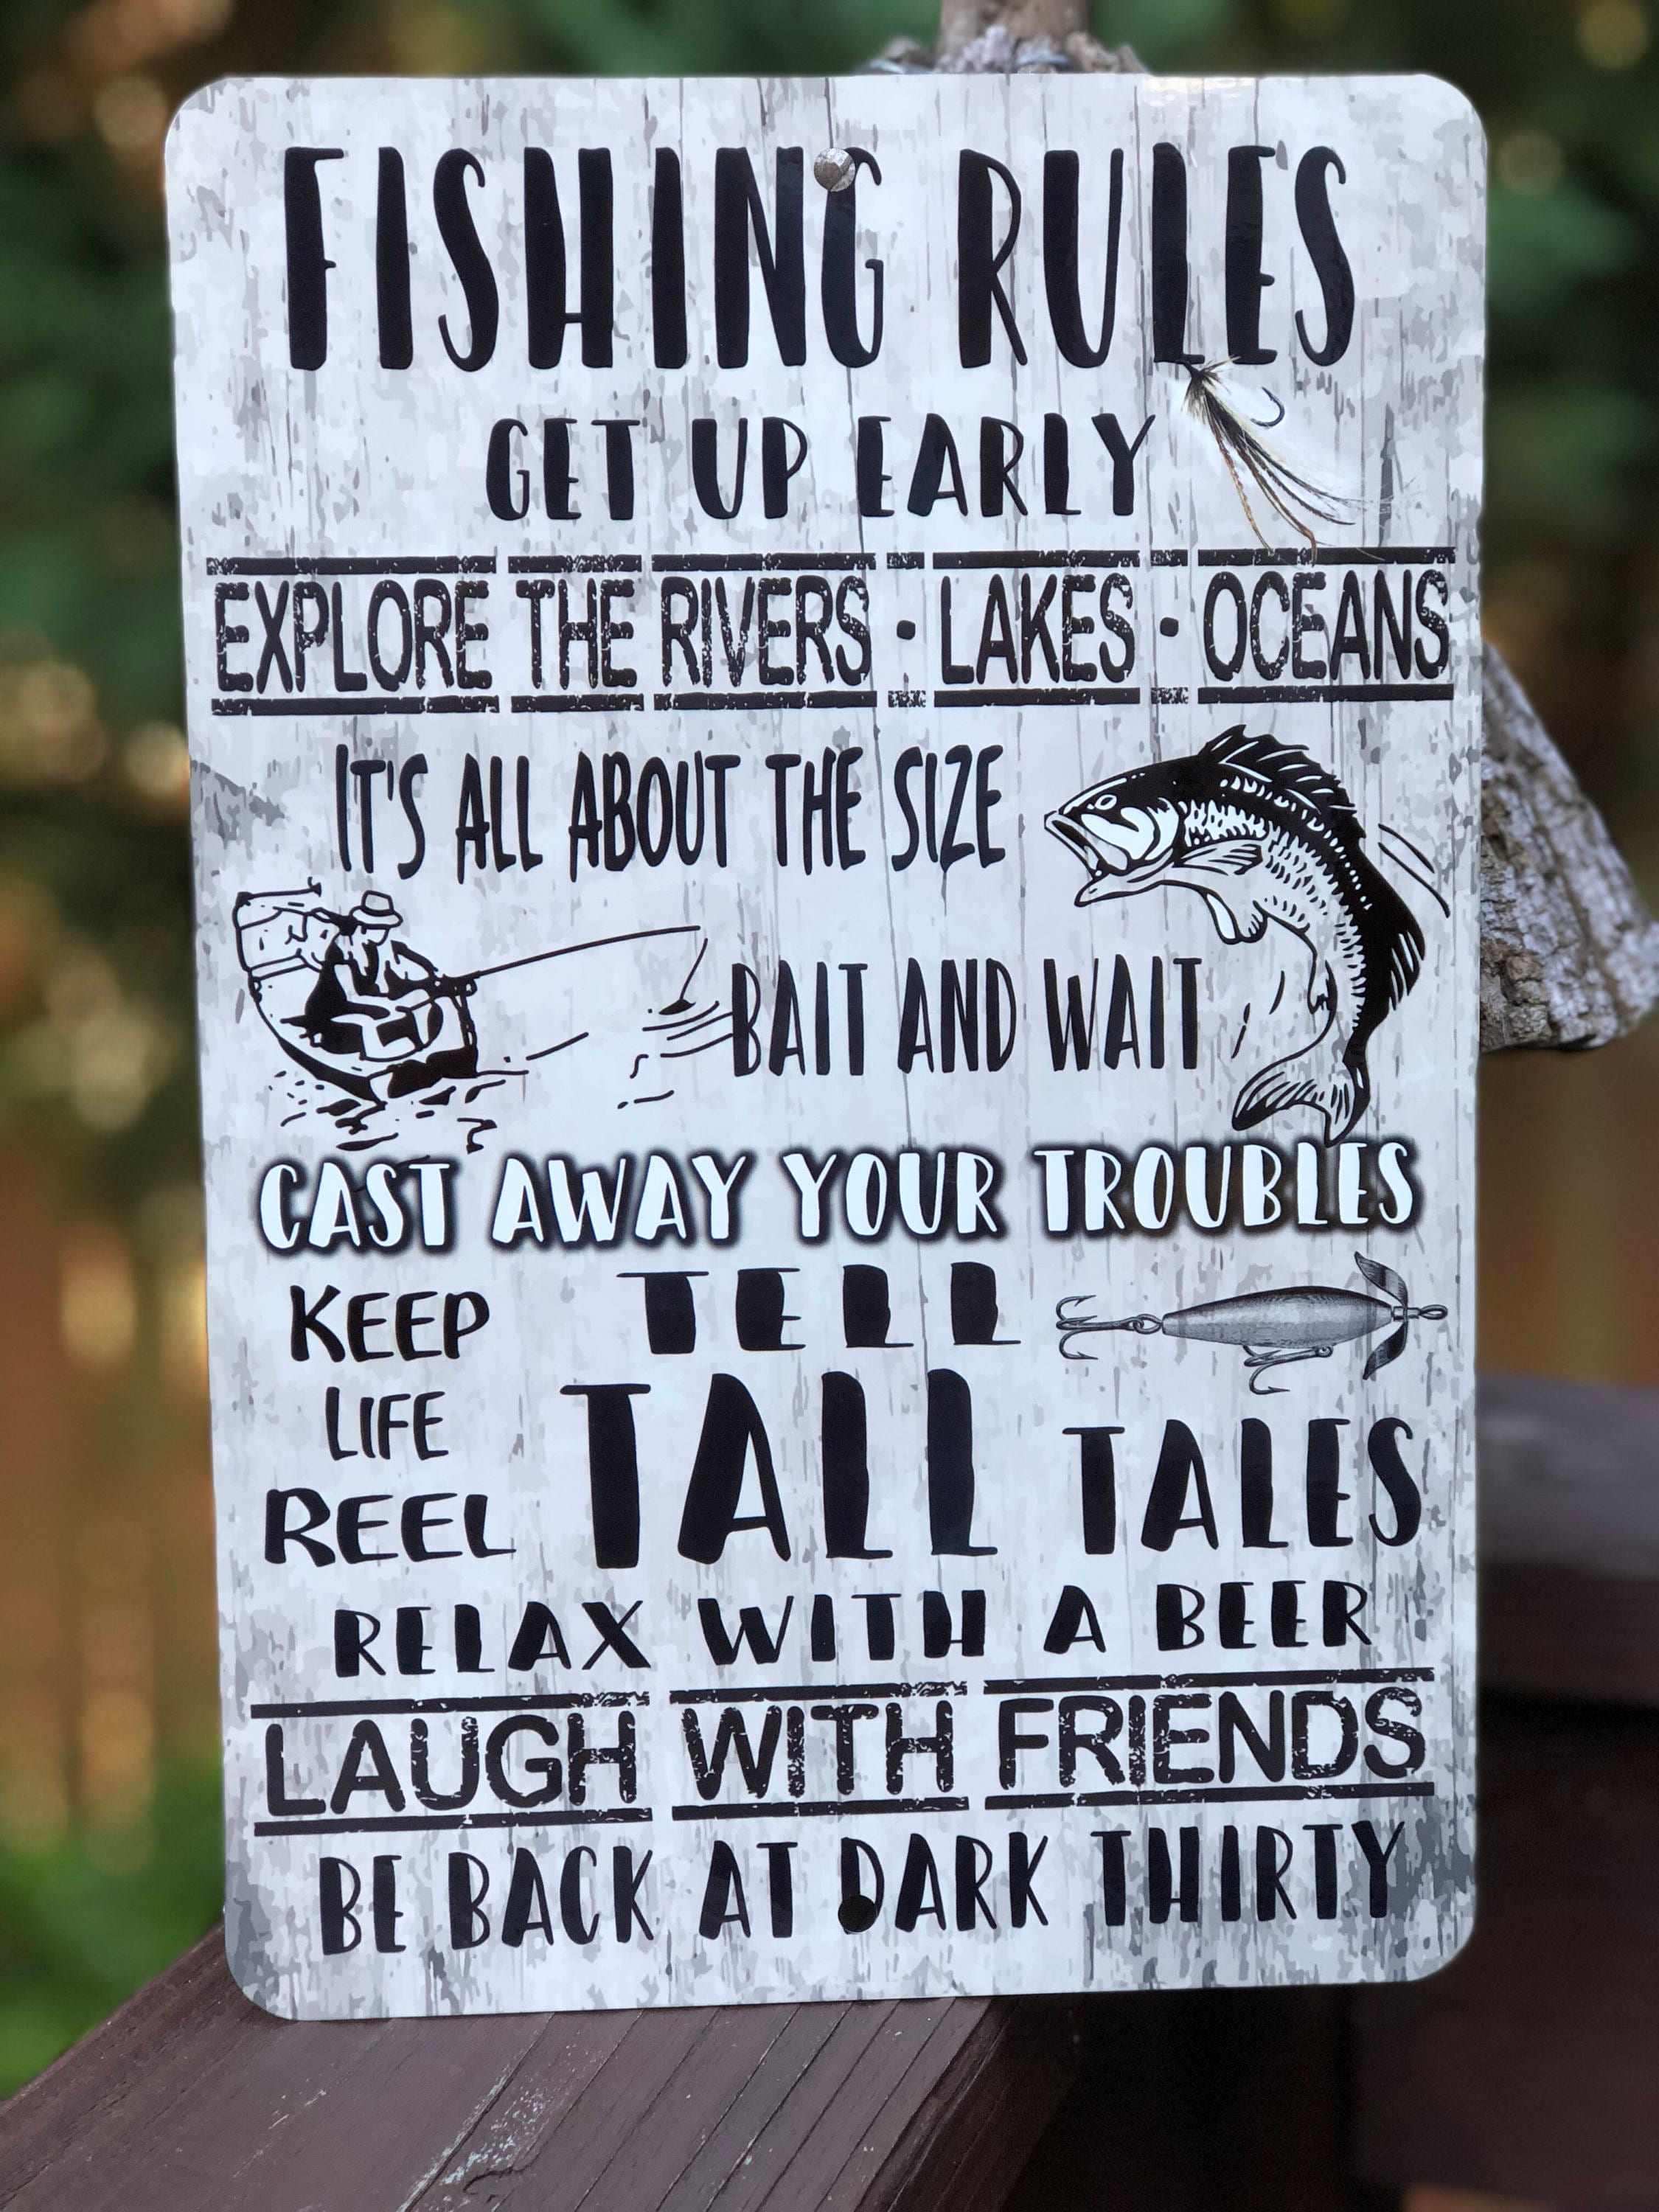 FISHING RULES
GET UP EARLY
EXPLORE THE RIVERS • LAKES • OCEANS
IT'S ALL ABOUT THE SIZE
BAIT AND WAIT
CAST AWAY YOUR TROUBLES
KEEP
LIFE
REEL
TELL
TALL TALES
RELAX WITH A BEER
LAUGH WITH FRIENDS
BE BACK AT DARK THIRTY